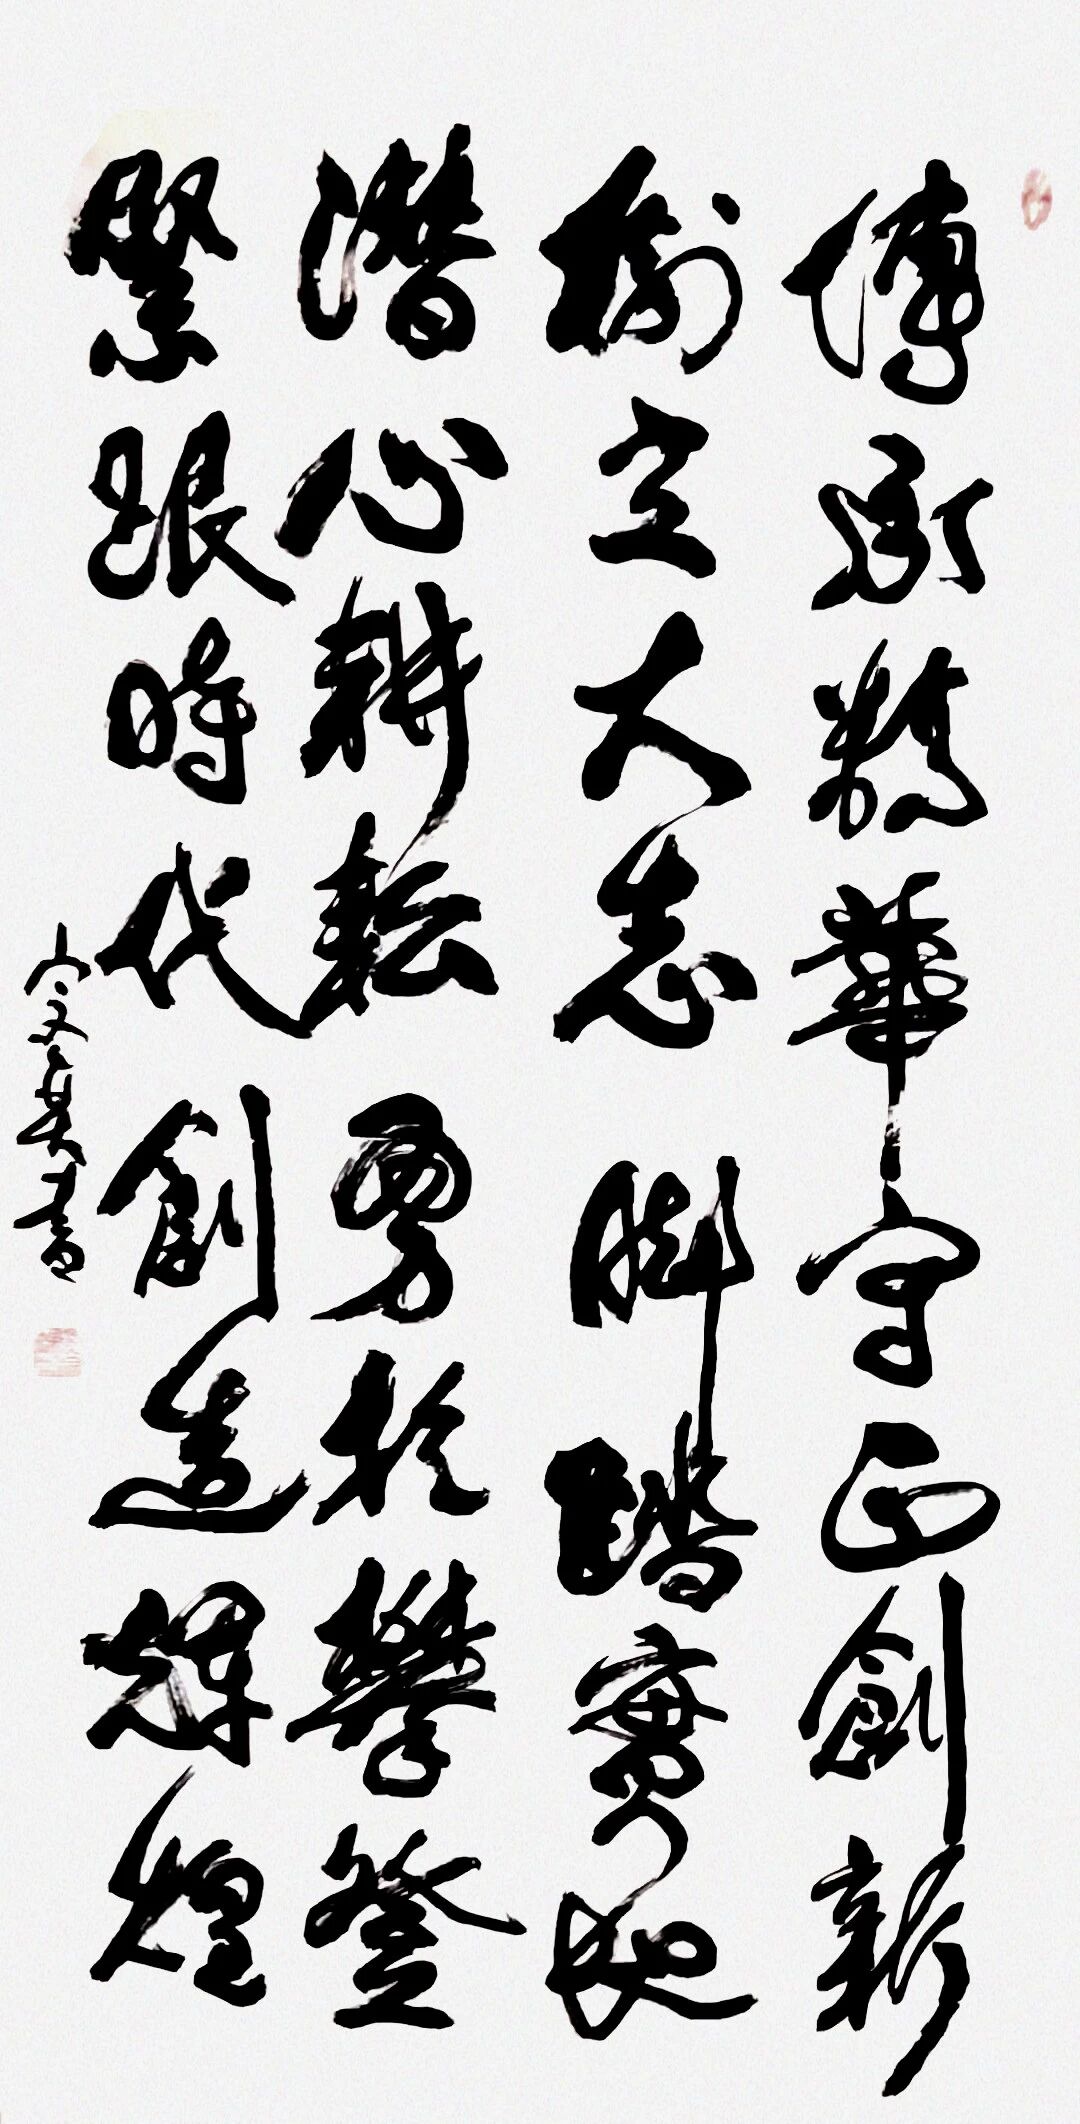 傳承精華守正創新
樹立大志脚踏實地
潛心耕耘勇於攀登
緊跟時代創造輝煌
文其書